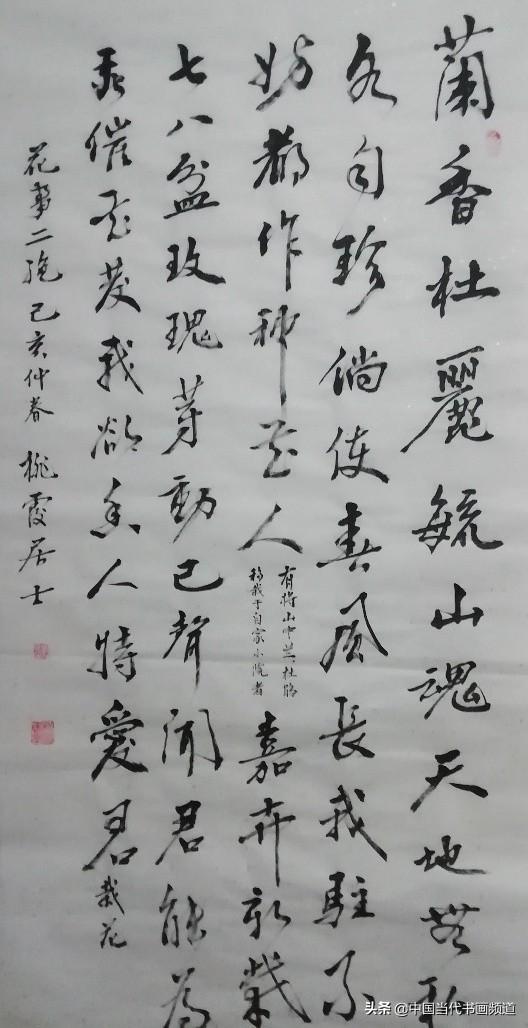 蘭香杜麗毓山魂天地無私
各自珍倘使春風長我駐不
妨都作種花人
有將山中兰杜鵑
移栽于自家小院者
嘉卉新栽
七八盆玫瑰芽動已聲聞君能為
催花發我欲人特愛君
栽花
花事二絶己亥仲春 桃霞居士
头条 @中国当代书画频道